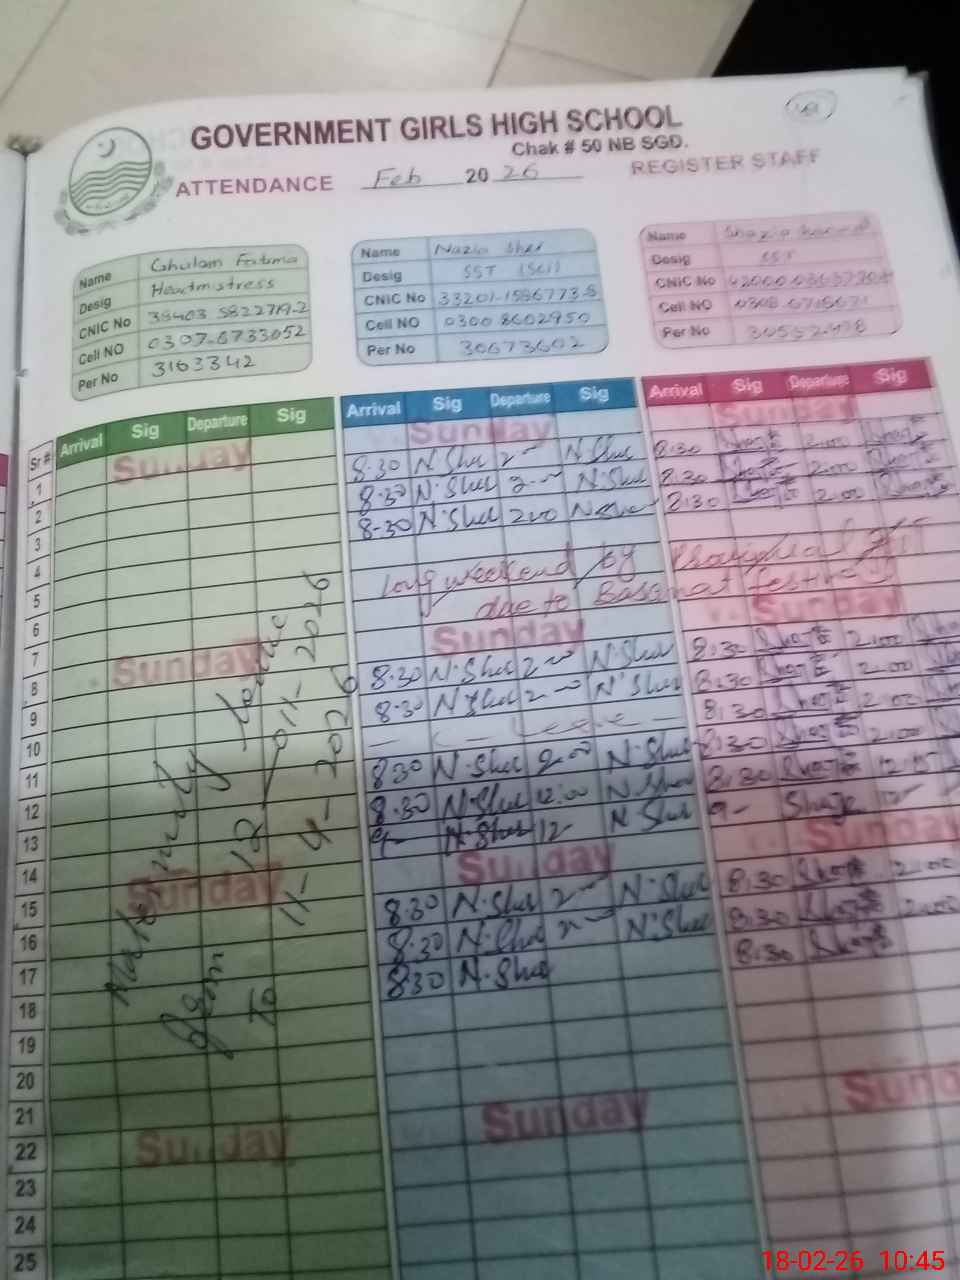 GOVERNMENT GIRLS HIGH SCHOOL
Chak # 50 NB SGD.
ATTENDANCE Feb 20 26 REGISTER STAFF
Name Ghulam Fatima
Desig Headmistress
CNIC No 38403 5822719-2
Cell NO 0307-6733052
Per No 3163342
Name Nazia Sher
Desig SST (Sci)
CNIC No 33201-1586773-8
Cell NO 0300 8602950
Per No 30673602
Name Shazia
Desig SST
CNIC No
Cell NO
Per No
Sr # Arrival Sig Departure Sig Arrival Sig Departure Sig Arrival Sig Departure Sig
Sunday Sunday Sunday
1 8.30 N.Sher 2 N.Sher 8.30 2.00
2 8.30 N.Sher 2 N.Sher 8.30 2.00
3 8-30 N.Sher 200 N.Sher 8.30 2.00
4
5 Long weekend by
6 due to Basant festival
7
Sunday Sunday Sunday
8 8.30 N.Sher 2 N.Sher 8.30 2.00
9 8.30 N.Sher 2 N.Sher 8.30 2.00
10 Leave 8.30 2.00
11 8.30 N.Sher 2.00 N.Sher 8.30 2.00
12 8.30 N.Sher 12.00 N.Sher 8.30 12.15
13 9- N.Sher 12- N.Sher 9-
14
Sunday Sunday Sunday
15 8.30 N.Sher 2 N.Sher 8.30 2.00
16 8.30 N.Sher 2 N.Sher 8.30 2.00
17 8.30 N.Sher 8.30
18
19
20
21
Sunday Sunday Sunday
22
23
24
25
Maternity leave
from 12-01-2026
To 11-4-2026
18-02-26 10:45